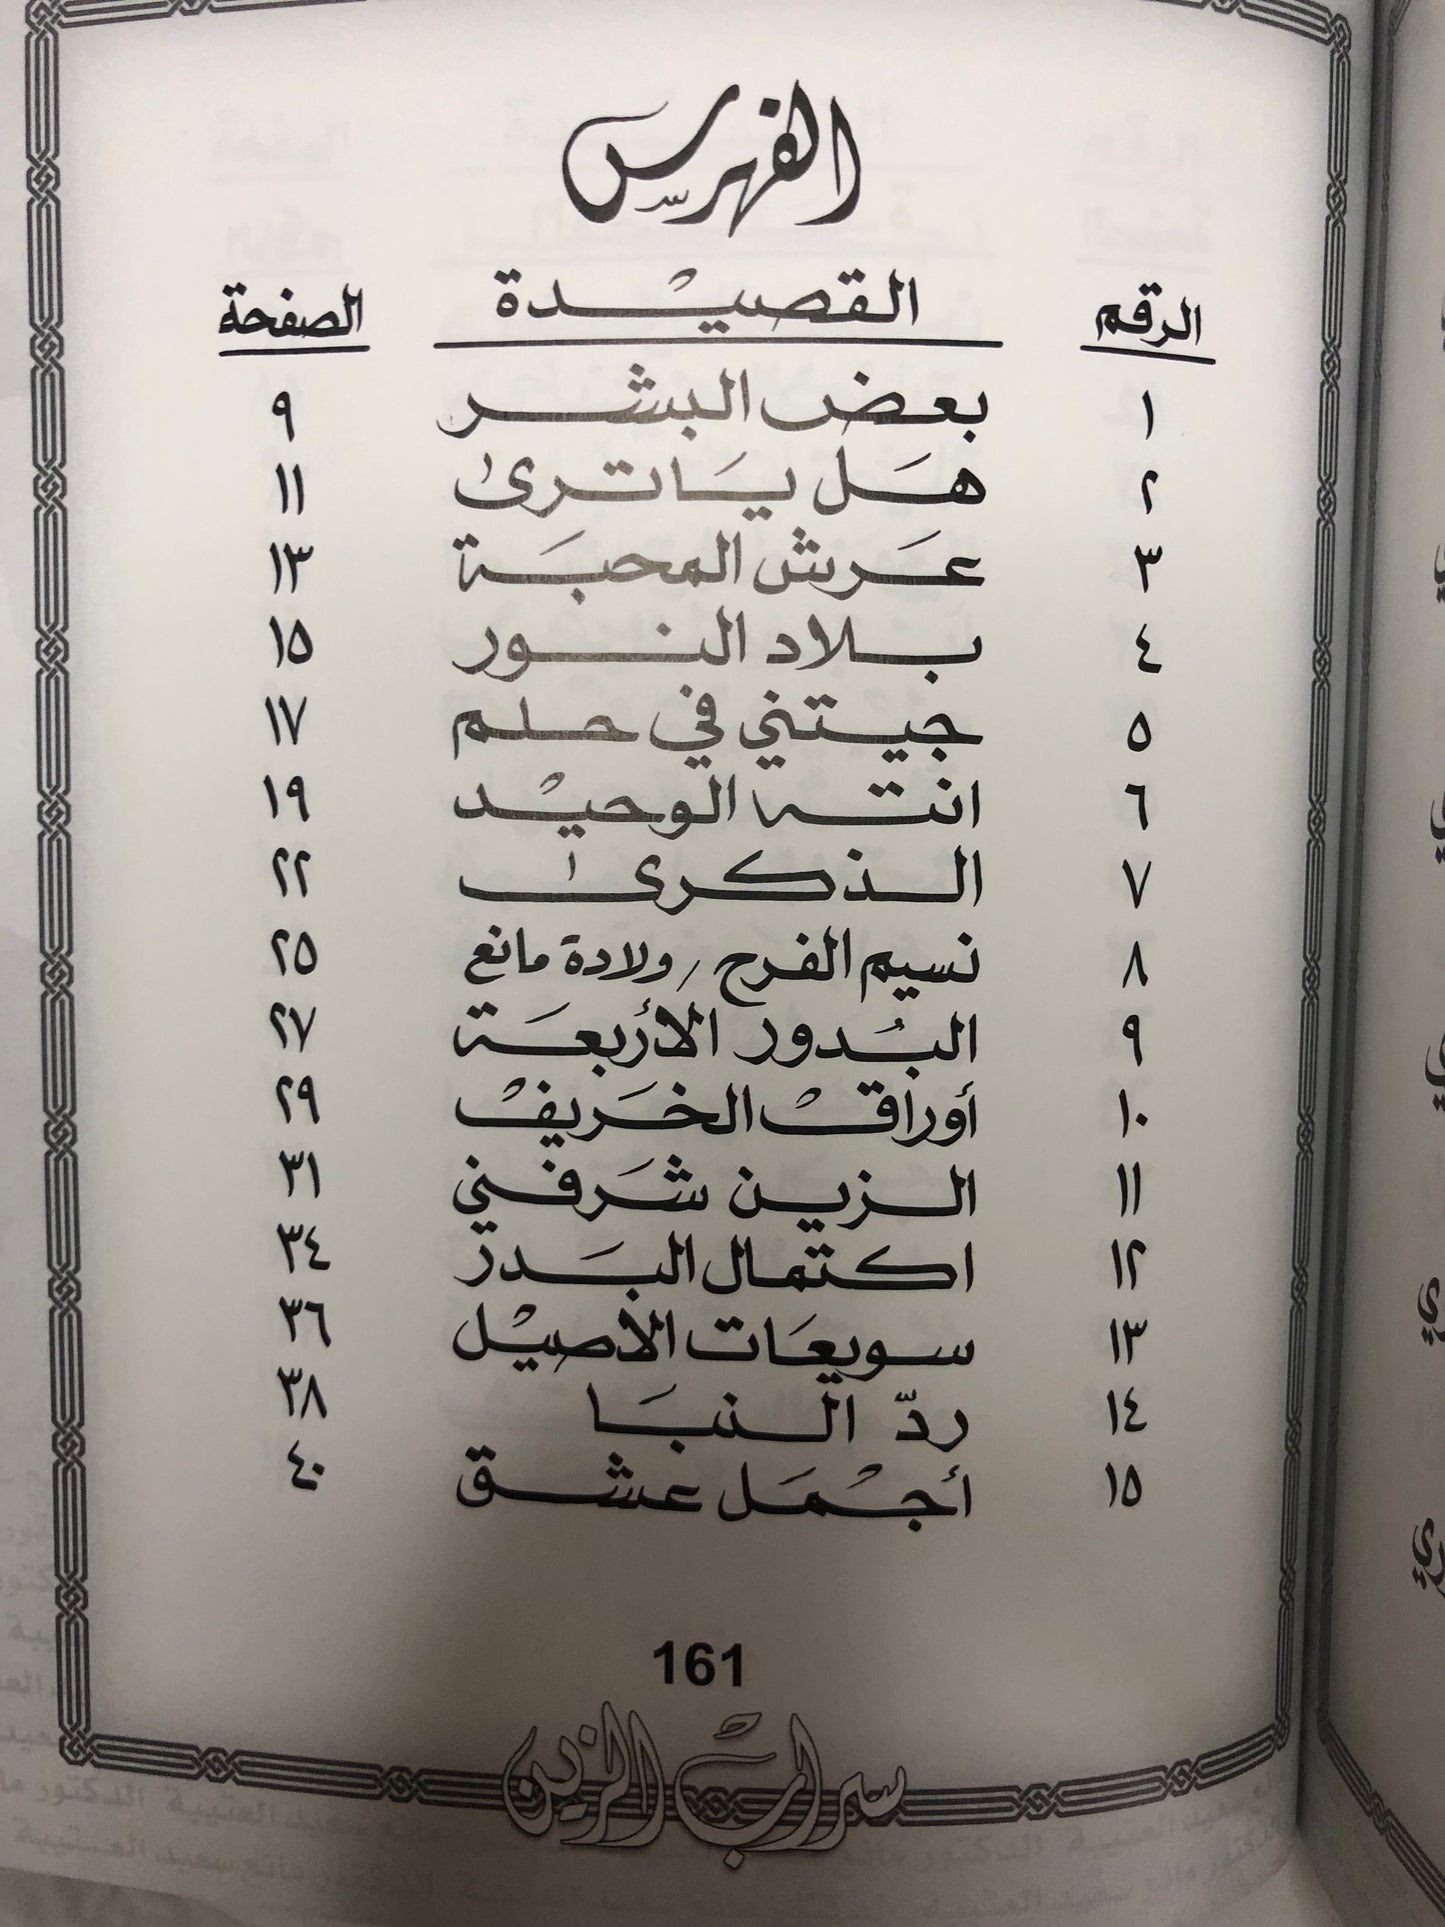 الفهرس
الرقم القصيدة الصفحة
١ بعض البشر ٩
٢ هل ياترى ١١
٣ عرش المحبة ١٣
٤ بلاد النور ١٥
٥ جيتني في حلم ١٧
٦ انته الوحيد ١٩
٧ الذكرى ٢٢
٨ نسيم الفرح / ولادة مانع ٢٥
٩ البُدور الأربعة ٢٧
١٠ أوراق الخريف ٢٩
١١ الزين شرفني ٣١
١٢ اكتمال البدر ٣٤
١٣ سويعات الأصيل ٣٦
١٤ ردّ النبا ٣٨
١٥ أجمل عشق ٤٠
161
سراب الزين